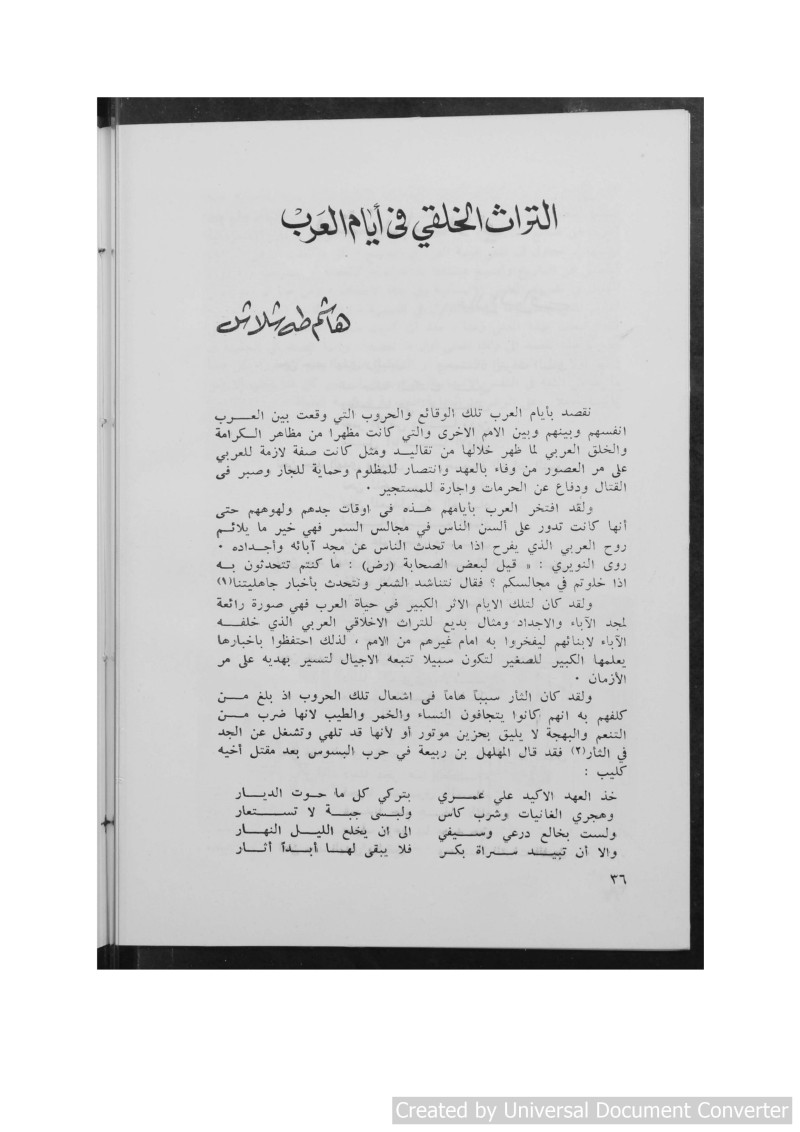 التراث الخلقي في أيام العرب
هاشم طه شلاش
نقصد بأيام العرب تلك الوقائع والحروب التي وقعت بين العـــرب
انفسهم وبينهم وبين الامم الاخرى والتي كانت مظهرا من مظاهر الـكرامة
والخلق العربي لما ظهر خلالها من تقاليـد ومثل كانت صفة لازمة للعربي
على مر العصور من وفاء بالعهد وانتصار للمظلوم وحماية للجار وصبر فى
القتال ودفاع عن الحرمات واجارة للمستجير ٠
ولقد افتخر العرب بأيامهم هـذه فى اوقات جدهم ولهوههم حتى
أنها كانت تدور على ألسن الناس في مجالس السمر فهي خير ما يلائـم
روح العربي الذي يفرح اذا ما تحدث الناس عن مجد آبائه وأجـداده ٠
روى النويري : « قيل لبعض الصحابة (رض) : ما كنتم تتحدثون بـه
اذا خلوتم في مجالسكم ؟ فقال نتناشد الشعر ونتحدث بأخبار جاهليتنا(١)
ولقد كان لتلك الايام الاثر الكبير في حياة العرب فهي صورة رائعة
لمجد الآباء والاجداد ومثال بديع للتراث الاخلاقي العربي الذي خلفـــه
الآباء لابنائهم ليفخروا به امام غيرهم من الامم ، لذلك احتفظوا باخبارها
يعلمها الكبير للصغير لتكون سبيلا تتبعه الاجيال لتسير بهديه على مر
الأزمان ٠
ولقد كان الثأر سبباً هاماً فى اشعال تلك الحروب اذ بلغ مـــن
كلفهم به انهم كانوا يتجافون النساء والخمر والطيب لانها ضرب مـــن
التنعم والبهجة لا يليق بحزين موتور أو لأنها قد تلهي وتشغل عن الجد
في الثار(٢) فقد قال المهلهل بن ربيعة في حرب البسوس بعد مقتل أخيه
كليب :
خذ العهد الاكيد علي عمـــري بتركي كل ما حوت الديـــار
وهجري الغانيات وشرب كاس ولبسى جبـــة لا تســـتعار
ولست بخالع درعي وســـيفي الى ان يخلع الليـــل النهـــار
والا أن تبيـــد ســـراة بكـــر فلا يبقى لهـــا أبـــداً أثـــار
٣٦
Created by Universal Document Converter